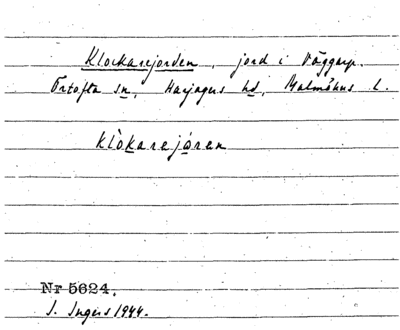 Klockarejorden, jord i Väggarp.
Örtofta sn, Harjagers hd, Malmöhus l.
klòkarejóren
Nr 5624.
I. Ingers 1944.